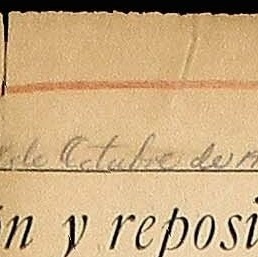 de Octubre de
ón y reposi